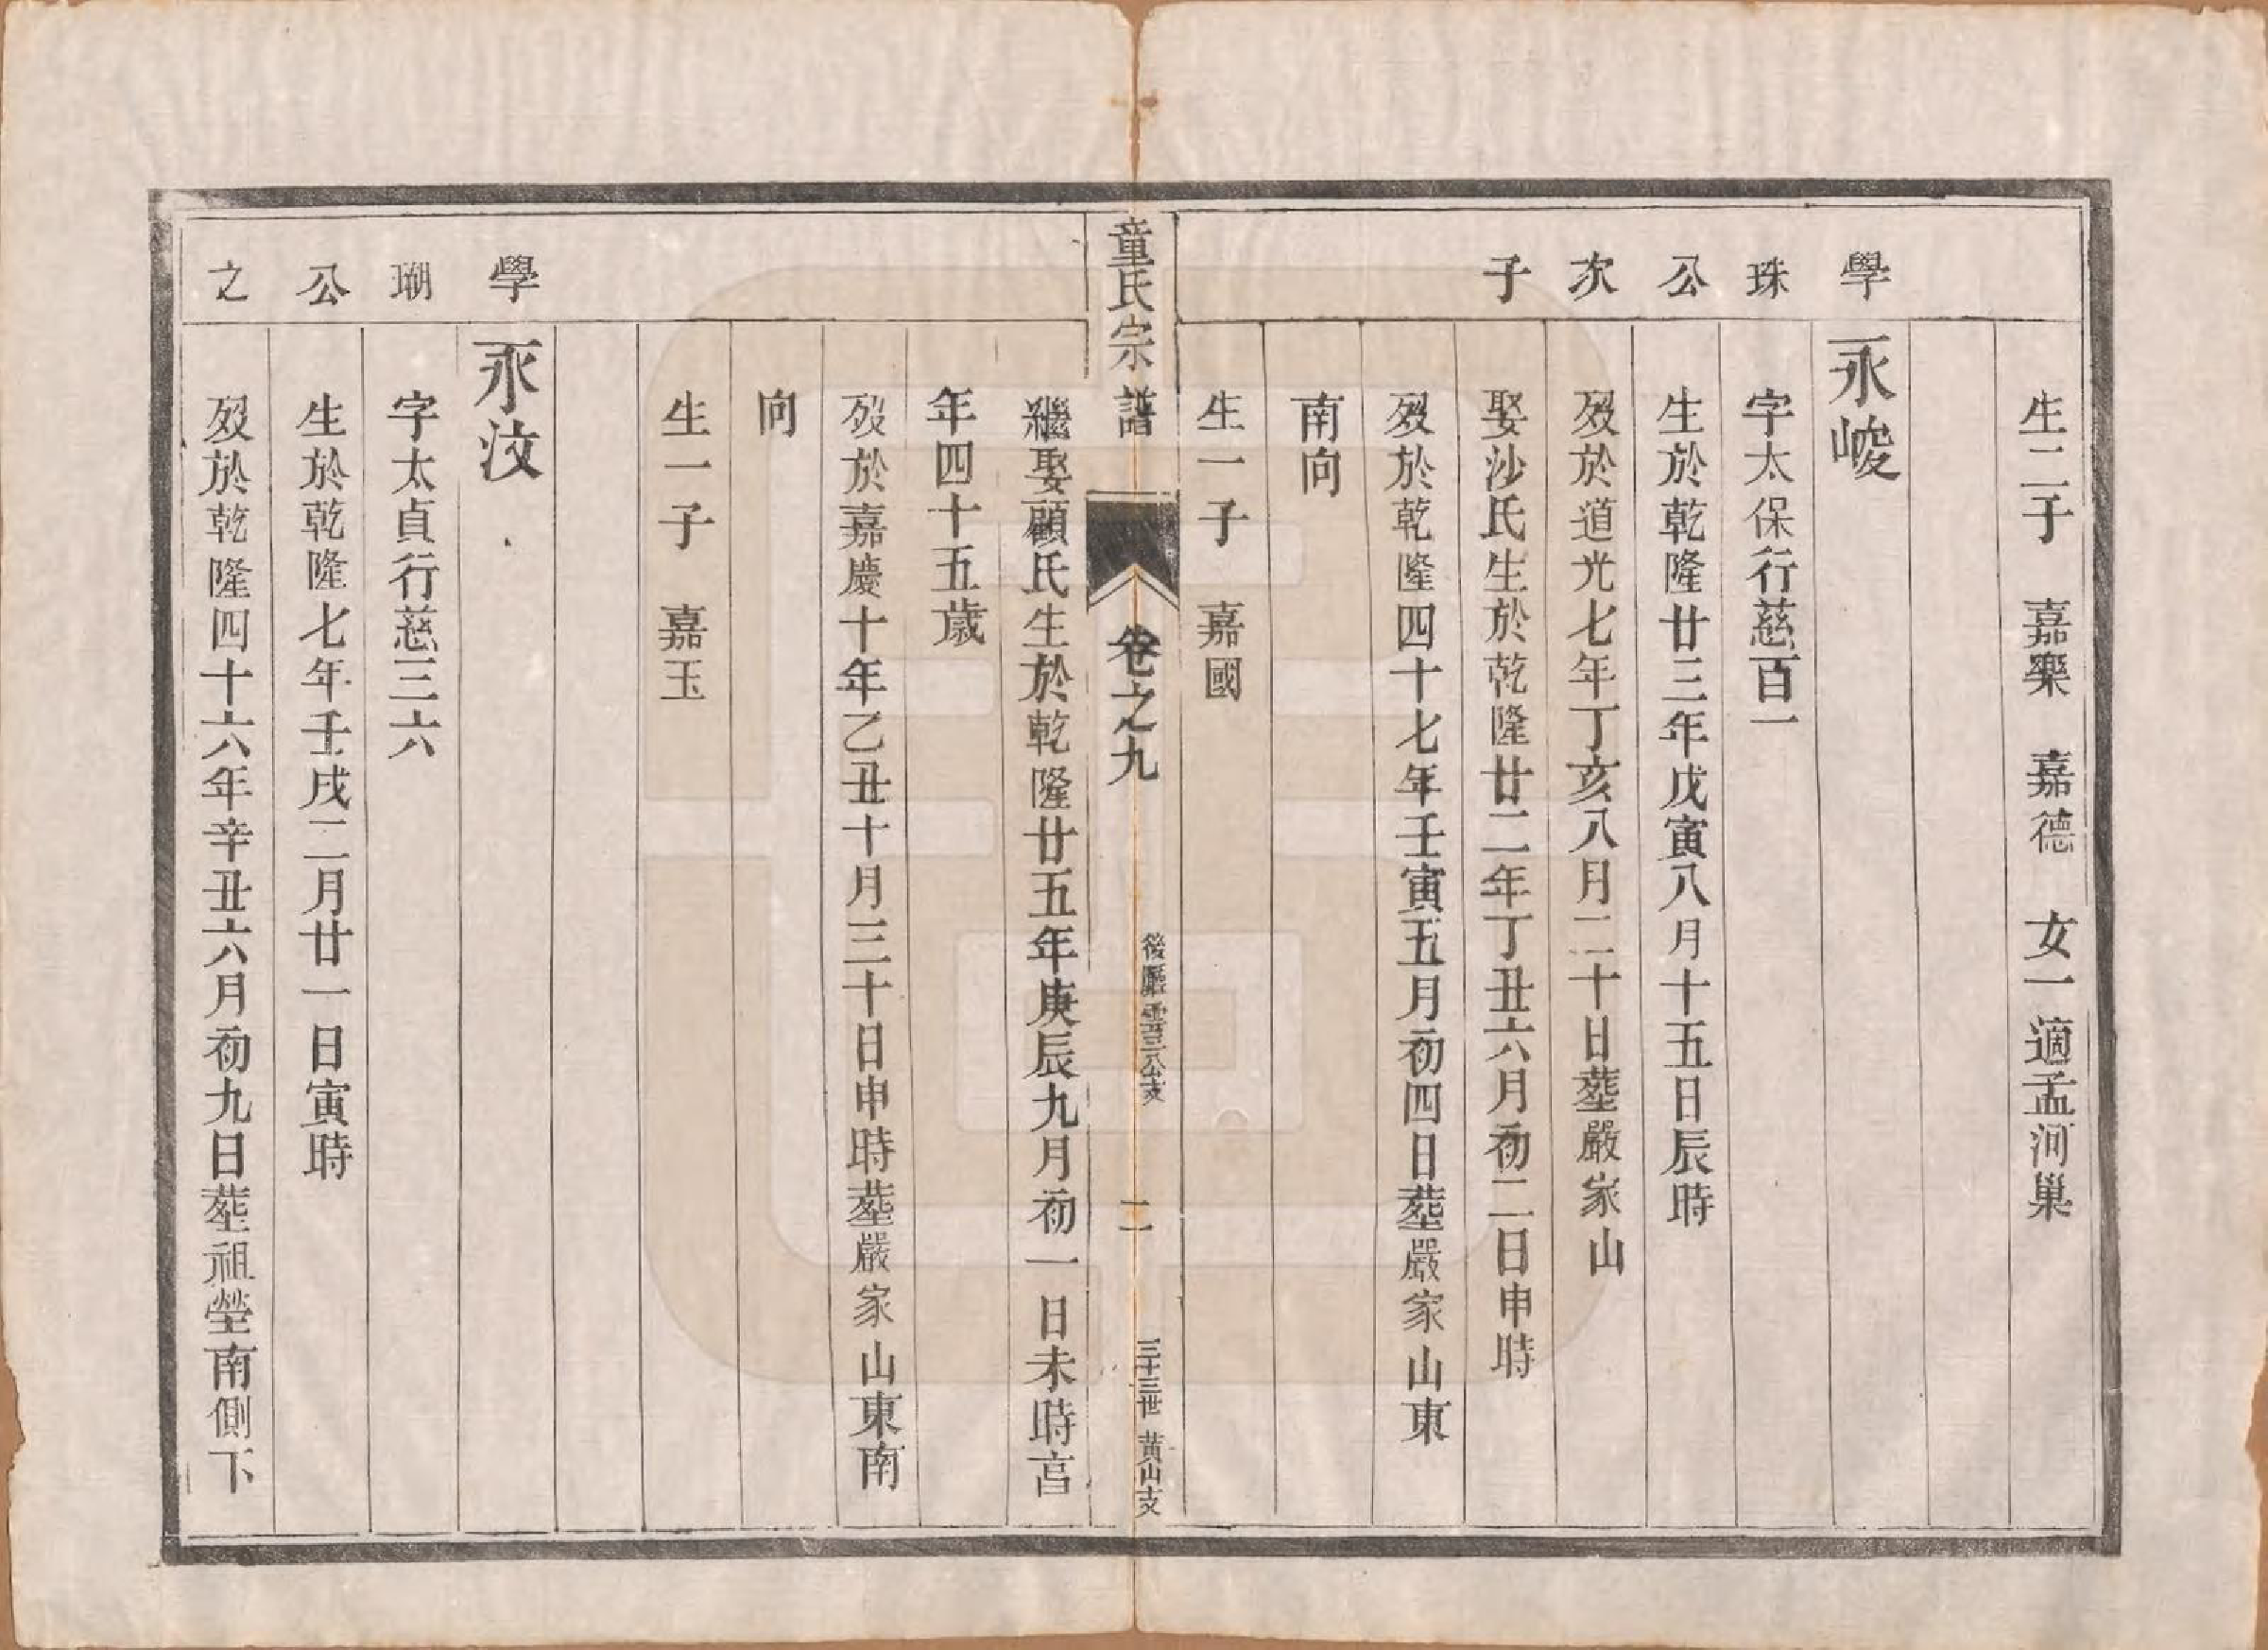 生二子　嘉樂　嘉德　女一適孟河巢
學珠公次子
永峻
字太保行慈百一
生於乾隆廿三年戊寅八月十五日辰時
歿於道光七年丁亥八月二十日塟嚴家山
娶沙氏生於乾隆廿二年丁丑六月初二日申時
歿於乾隆四十七年壬寅五月初四日塟嚴家山東
南向
生一子　嘉國
童氏宗譜
卷之九
後塸雲三公支
二
三十三世　黃山支
繼娶顧氏生於乾隆廿五年庚辰九月初一日未時亯
年四十五歲
歿於嘉慶十年乙丑十月三十日申時塟嚴家山東南
向
生一子　嘉玉
學瑚公之
永汶
字太貞行慈三六
生於乾隆七年壬戌二月廿一日寅時
歿於乾隆四十六年辛丑六月初九日塟祖塋南側下